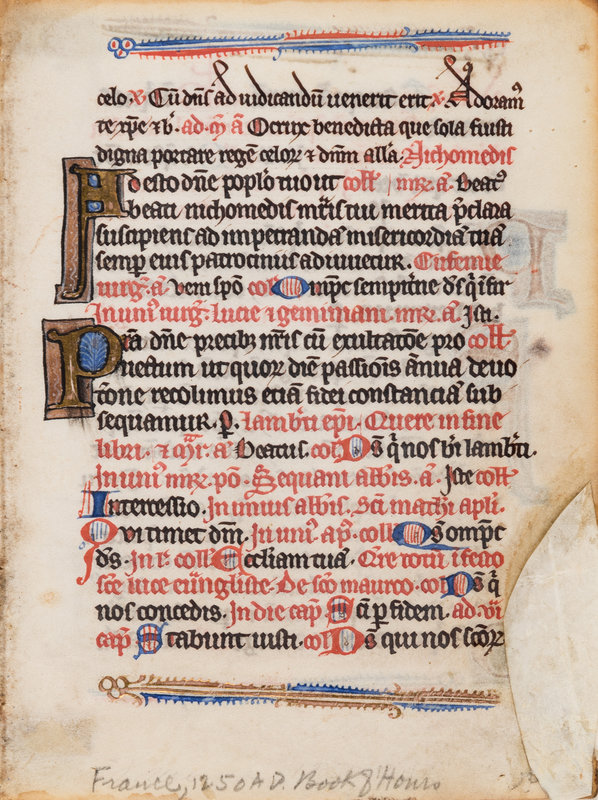 celo. ℣ Cū dn̄s ad iudicandū uenerit erit ℣. Adoramꝰ
te xp̄e ⁊ b̾. ad. m̄ a̅ O crux benedicta que sola fuisti
digna portare regē celoꝝ ⁊ dn̄m all'a. Nichomedis
Adesto dn̄e pop̄lo tuo ut coll̾. mr̄. a. Beatꝰ
beati nichomedis mr̄is tui merita p̄clara
suscipiens ad impetrandā misericordiā tuā
semp̱ eius patrociniis adiuuetur. Eufemie
uirg̾. a̅ Veni spō col̾ Om̄pc sempit̾ne d̄s q̇ ifir
In uniꝰ uirg̾. Lucie ⁊ geminiani. mr̄. a̅. Isti.
Pͣta dn̄e precibꝫ mr̄is cū exultatōe pro coll̾.
uectum ut quoꝝ diē passiōis ānua deuo
tōne recolimus etiā fidei constanciā sub
sequamur. ꝑ. Lamb̾ti ep̄i. Quere in fine
libri. ⁊ a̅ Beatus. col̾ D̄s q̇ nos b̄i lamb̾ti.
In uniꝰ mr̄. pō. Sequani albis. a̅. Iste coll̾
Intercessio. In uiuis albis. Sc̄i mathi apl̄i.
Qui timet dn̄m. In uniꝰ ap̄. coll̾ Q̄s om̄pc
d̄s. In l̾. coll̾ Eccl̄iam tuā. Q̾re totū ī festo
sc̄e luce eūngliste. De sc̄o maurco. col̾ D̄s q̇
nos concedis. In die cap̄ Sc̄i ꝑ fidem. ad. ui
cap̄ Stabunt iusti. col̾ D̄s qui nos sc̄oꝝ
France, 1250 A.D. Book of Hours